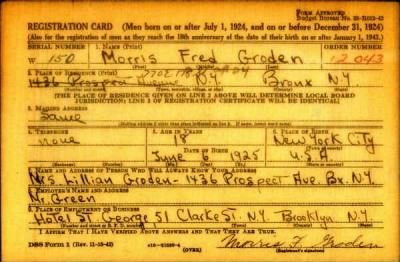 FORM APPROVED
REGISTRATION CARD (Men born on or after July 1, 1924, and on or before December 31, 1924)
(Also for the registration of men as they reach the 18th anniversary of the date of their birth on or after January 1, 1943.)
SERIAL NUMBER 1. NAME (Print) ORDER NUMBER
W 150 Morris Fred Groden 12043
(First) (Middle) (Last)
2. PLACE OF RESIDENCE (Print)
1436 Prospect Avenue NY Bronx NY
[THE PLACE OF RESIDENCE GIVEN ON LINE 2 ABOVE WILL DETERMINE LOCAL BOARD
JURISDICTION; LINE 2 OF REGISTRATION CERTIFICATE WILL BE IDENTICAL]
3. MAILING ADDRESS
Same
[Mailing address if other than place indicated on line 2. If same, insert word same]
4. TELEPHONE 5. AGE IN YEARS 6. PLACE OF BIRTH
none 18 New York City
DATE OF BIRTH
June 6 1925 U.S.A
(Exchange) (Number) (Mo.) (Day) (Yr.) (State or country)
7. NAME AND ADDRESS OF PERSON WHO WILL ALWAYS KNOW YOUR ADDRESS
Mrs Lillian Groden - 1436 Prospect Ave. Bx. N.Y.
8. EMPLOYER'S NAME AND ADDRESS
Mr. Green
9. PLACE OF EMPLOYMENT OR BUSINESS
Hotel St George 51 Clarke St. N.Y. Brooklyn N.Y.
(Number and street or R. F. D. number) (Town) (County) (State)
I AFFIRM THAT I HAVE VERIFIED ABOVE ANSWERS AND THAT THEY ARE TRUE.
DSS Form 1 (Rev. 11-16-42) (OVER) Morris F. Groden